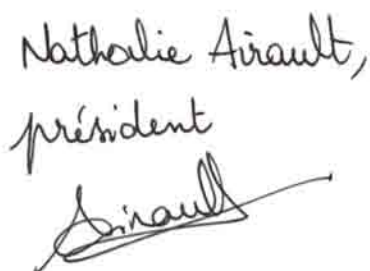 Nathalie Airault,
président
Airault